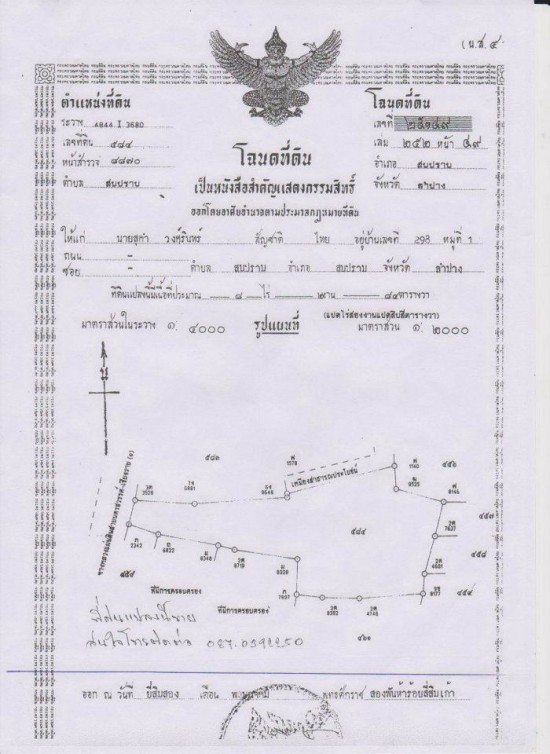 (น.ส. ๔
ตำแหน่งที่ดิน
โฉนดที่ดิน
ระวาง 4844 I 3680
เลขที่ ๒๕๑๔๙
เลขที่ดิน ๕๘๔
เล่ม ๒๕๒ หน้า ๔๙
หน้าสำรวจ ๔๘๗๐
อำเภอ สบปราบ
ตำบล สบปราบ
จังหวัด ลำปาง
โฉนดที่ดิน
เป็นหนังสือสำคัญแสดงกรรมสิทธิ์
ออกโดยอาศัยอำนาจตามประมวลกฎหมายที่ดิน
ให้แก่ นายสุคำ วงศุรินทร์ สัญชาติ ไทย อยู่บ้านเลขที่ 298 หมู่ที่ 1
ถนน -
ซอย - ตำบล สบปราบ อำเภอ สบปราบ จังหวัด ลำปาง
ที่ดินแปลงนี้มีเนื้อที่ประมาณ ๘ ไร่ ๒ งาน ๘๔ ตารางวา
(แปดไร่สองงานแปดสิบสี่ตารางวา)
มาตราส่วนในระวาง ๑: ๔๐๐๐ รูปแผนที่ มาตราส่วน ๑: ๒๐๐๐
น
๕๘๑
ศ
1578
เหมืองสาธารณประโยชน์
ศ
1140
๔๕๖
3529
5991
8648
8125
9166
๔๕๗
7637
๕๘๔
๔๕๘
3342
6822
6346
6719
8028
4631
7697
9362
4746
9177
๔๕๙
ที่มีการครอบครอง
ที่มีการครอบครอง
๔๖๑
ที่ดินแปลงนี้ขาย
สนใจโทรติดต่อ 087.0591250
ออก ณ วันที่ ยี่สิบสอง เดือน พฤษภาคม พุทธศักราช สองพันห้าร้อยสี่สิบเก้า